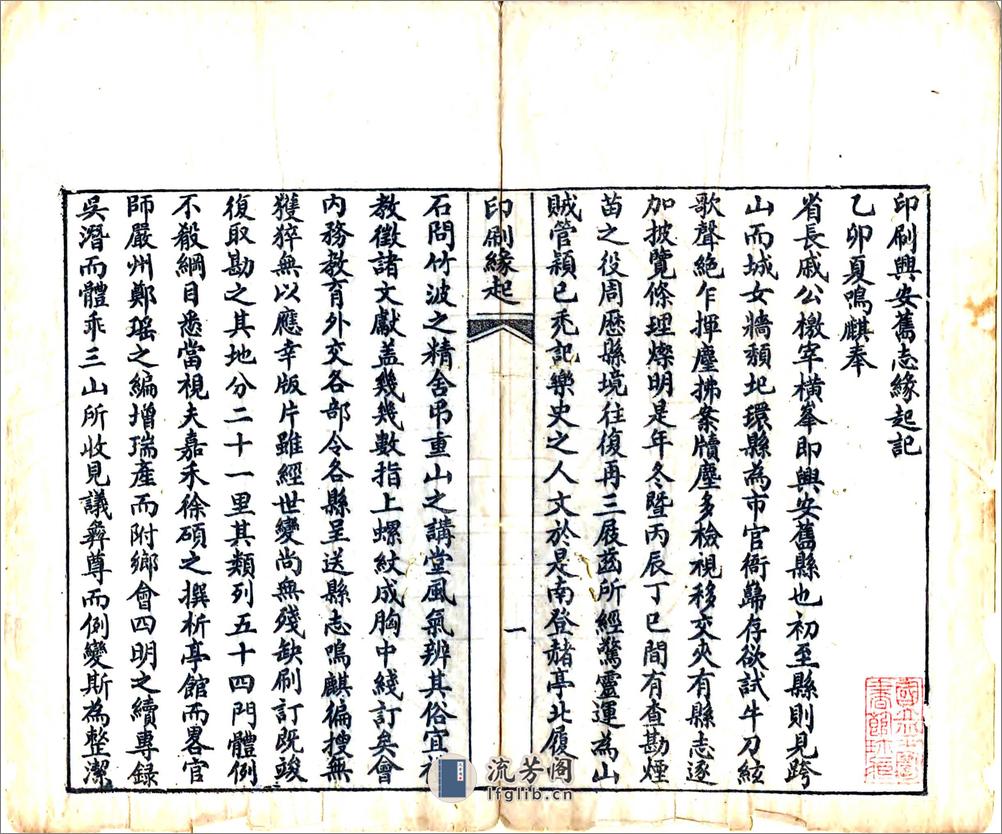 印刷興安舊志緣起記
乙卯夏鳴麒奉
省長戚公檄宰橫峯即興安舊縣也初至縣則見跨
山而城女牆頹圯環縣為市官衙巋存欲試牛刀絃
歌聲絶乍揮塵拂案牘塵多檢視移交夾有縣志遂
加披覽條理燦明是年冬暨丙辰丁巳間有查勘煙
苗之役周歷縣境往復再三屐茲所經驚靈運為山
賊管穎已禿記樂史之人文於是南登赭亭北履
印刷緣起
一
石問竹波之精舍吊重山之講堂風氣辨其俗宜
教徵諸文獻盖幾幾數指上螺紋成胸中綫訂矣會
內務教育外交各部令各縣呈送縣志鳴麒徧搜無
獲猝無以應幸版片雖經世變尚無殘缺刷訂既竣
復取勘之其地分二十一里其類列五十四門體例
不殽綱目悉當視夫嘉禾徐碩之撰析亭館而畧官
師嚴州鄭瑶之編增瑞產而附鄉會四明之續專錄
吳潛而體乖三山所收見議彜尊而例變斯為整潔
流芳阁
lfglib.cn